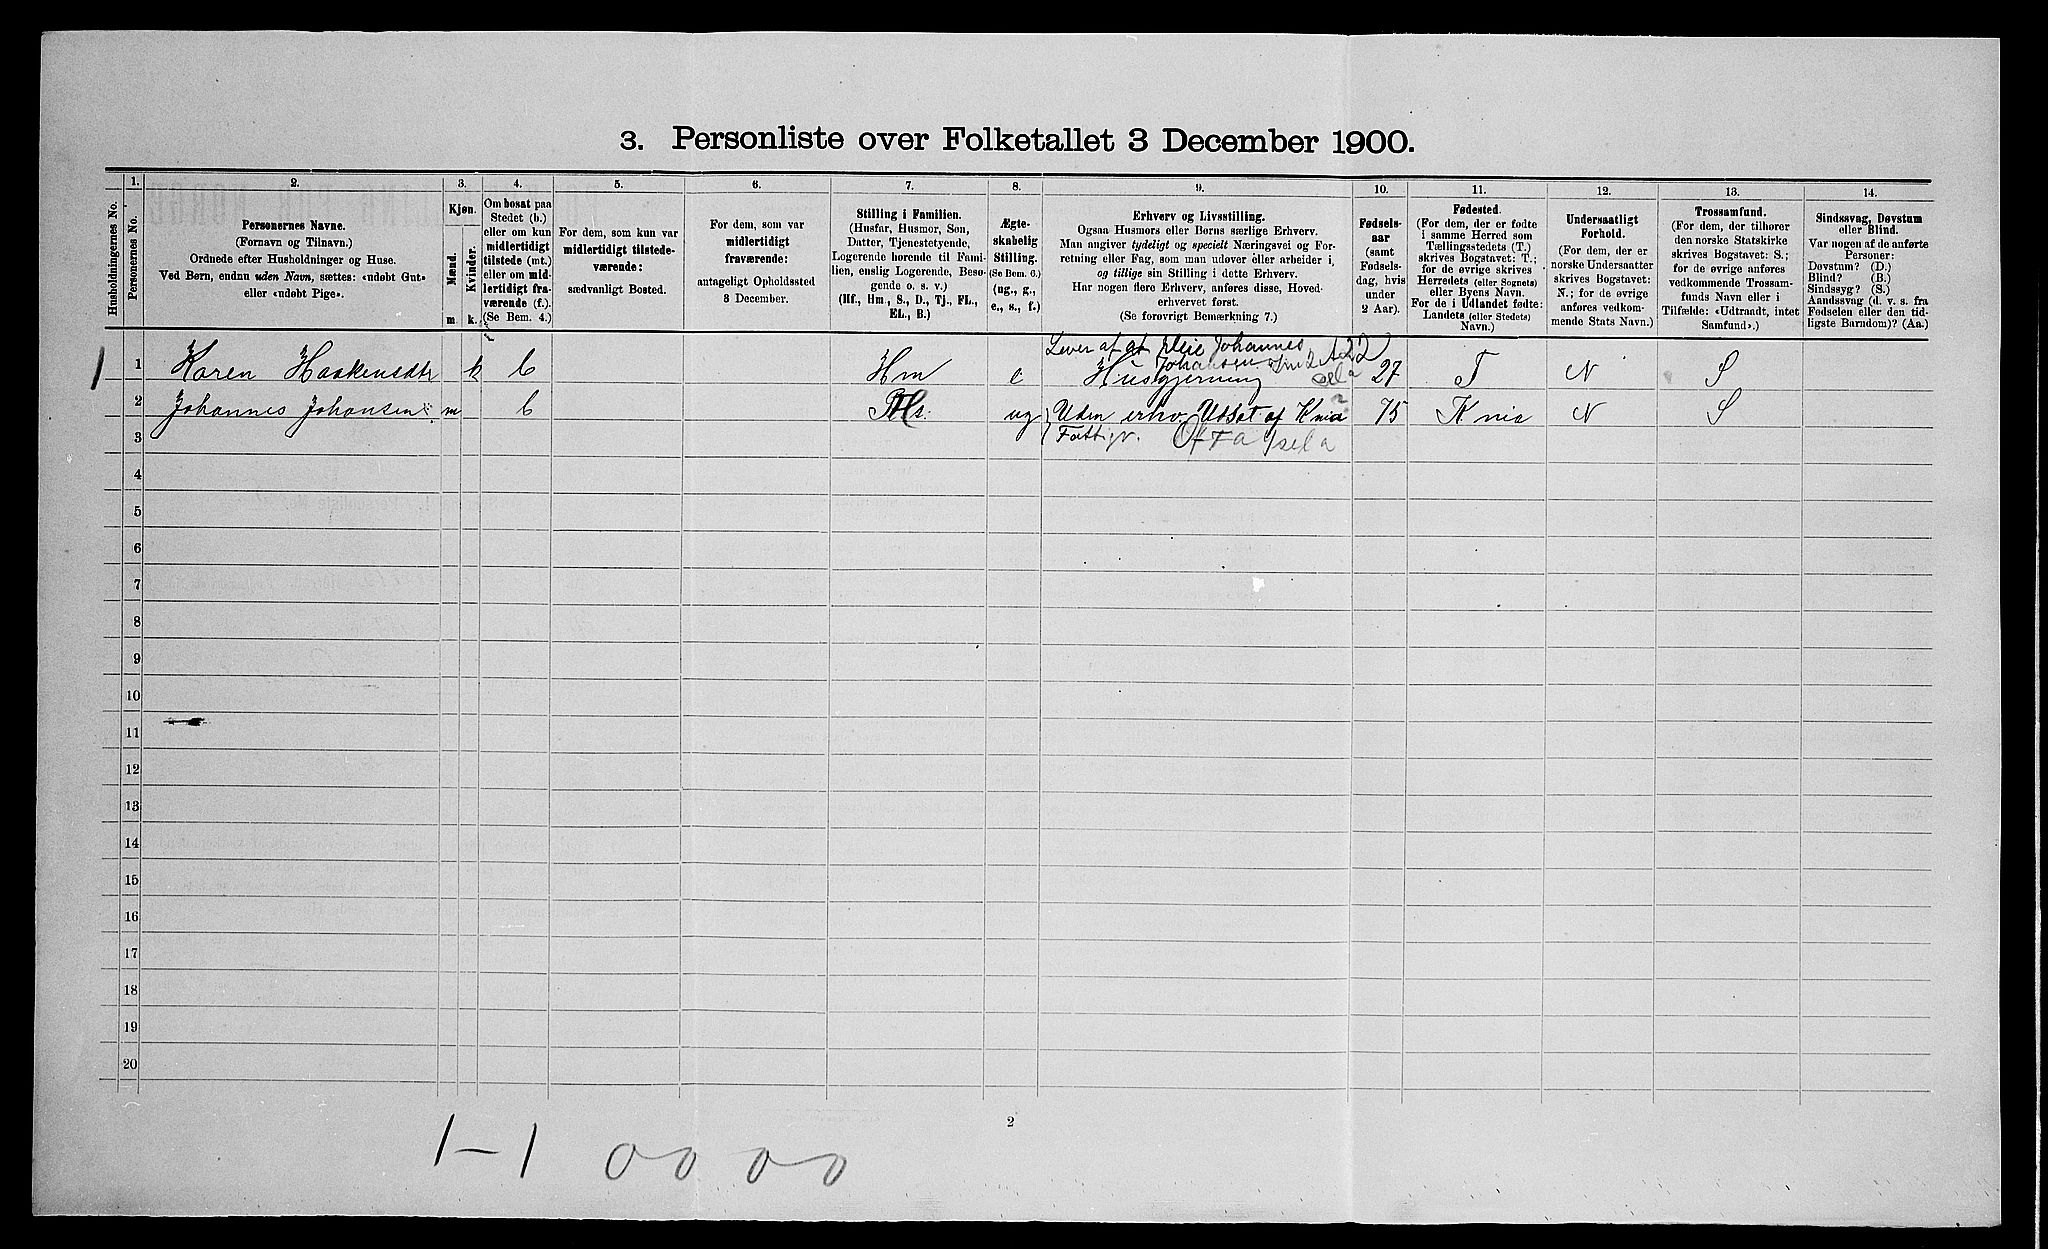 3. Personliste over Folketallet 3 December 1900.
Husholdningernes No.
1.
Personernes No.
2.
Personernes Navne.
(Fornavn og Tilnavn.)
Ordnede efter Husholdninger og Huse.
Ved Børn, endnu uden Navn, sættes: «udøbt Gut»
eller «udøbt Pige».
3.
Kjøn.
Mænd.
Kvinder.
m. k.
4.
Om bosat paa
Stedet (b.)
eller om kun
midlertidigt
tilstede (mt.)
eller om mid-
lertidigt fra-
værende (f.).
(Se Bem. 4.)
5.
For dem, som kun var
midlertidigt tilstede-
værende:
sædvanligt Bosted.
6.
For dem, som var
midlertidigt
fraværende:
antageligt Opholdssted
3 December.
7.
Stilling i Familien.
(Husfar, Husmor, Søn,
Datter, Tjenestetyende,
Logerende hørende til Fami-
lien, enslig Logerende, Besø-
gende o. s. v.)
(Hf., Hm., S., D., Tj., FL.,
EL., B.)
8.
Ægte-
skabelig
Stilling.
(Se Bem. 6.)
(ug., g.,
e., s., f.)
9.
Erhverv og Livsstilling.
Ogsaa Husmors eller Børns særlige Erhverv.
Man angiver tydeligt og specielt Næringsvei og For-
retning eller Fag, som man udøver eller arbeider i,
og tillige sin Stilling i dette Erhverv.
Har nogen flere Erhverv, anføres disse, Hoved-
erhvervet først.
(Se forøvrigt Bemærkning 7.)
10.
Fødsels-
aar
(samt
Fødsels-
dag, hvis
under
2 Aar).
11.
Fødested.
(For dem, der er fødte
i samme Herred som
Tællingsstedets (T.)
skrives Bogstavet: T.;
for de øvrige skrives
Herredets (eller Sognets)
eller Byens Navn.
For de i Udlandet fødte:
Landets (eller Stedets)
Navn.)
12.
Undersaatligt
Forhold.
(For dem, der er
norske Undersaatter
skrives Bogstavet:
N.; for de øvrige
anføres vedkom-
mende Stats Navn.)
13.
Trossamfund.
(For dem, der tilhører
den norske Statskirke
skrives Bogstavet: S.;
for de øvrige anføres
vedkommende Trossam-
funds Navn eller i
Tilfælde: «Udtraadt, intet
Samfund».)
14.
Sindssvag, Døvstum
eller Blind.
Var nogen af de anførte
Personer:
Døvstum? (D.)
Blind? (B.)
Sindssyg? (S.)
Aandssvag (d. v. s. fra
Fødselen eller den tid-
ligste Barndom)? (Aa.)
Lever af at pleie Johannes
Johansen
1 1 Karen Haakensdtr k b Hm e Husgjerning 27 T N S
2 Johannes Johansen m b ug Uden erhv. Udsat af Knia 75 Knia N S
3 Fattigv.
4
5
6
7
8
9
10
11
12
13
14
15
16
17
18
19
20
2
1-1 00 00